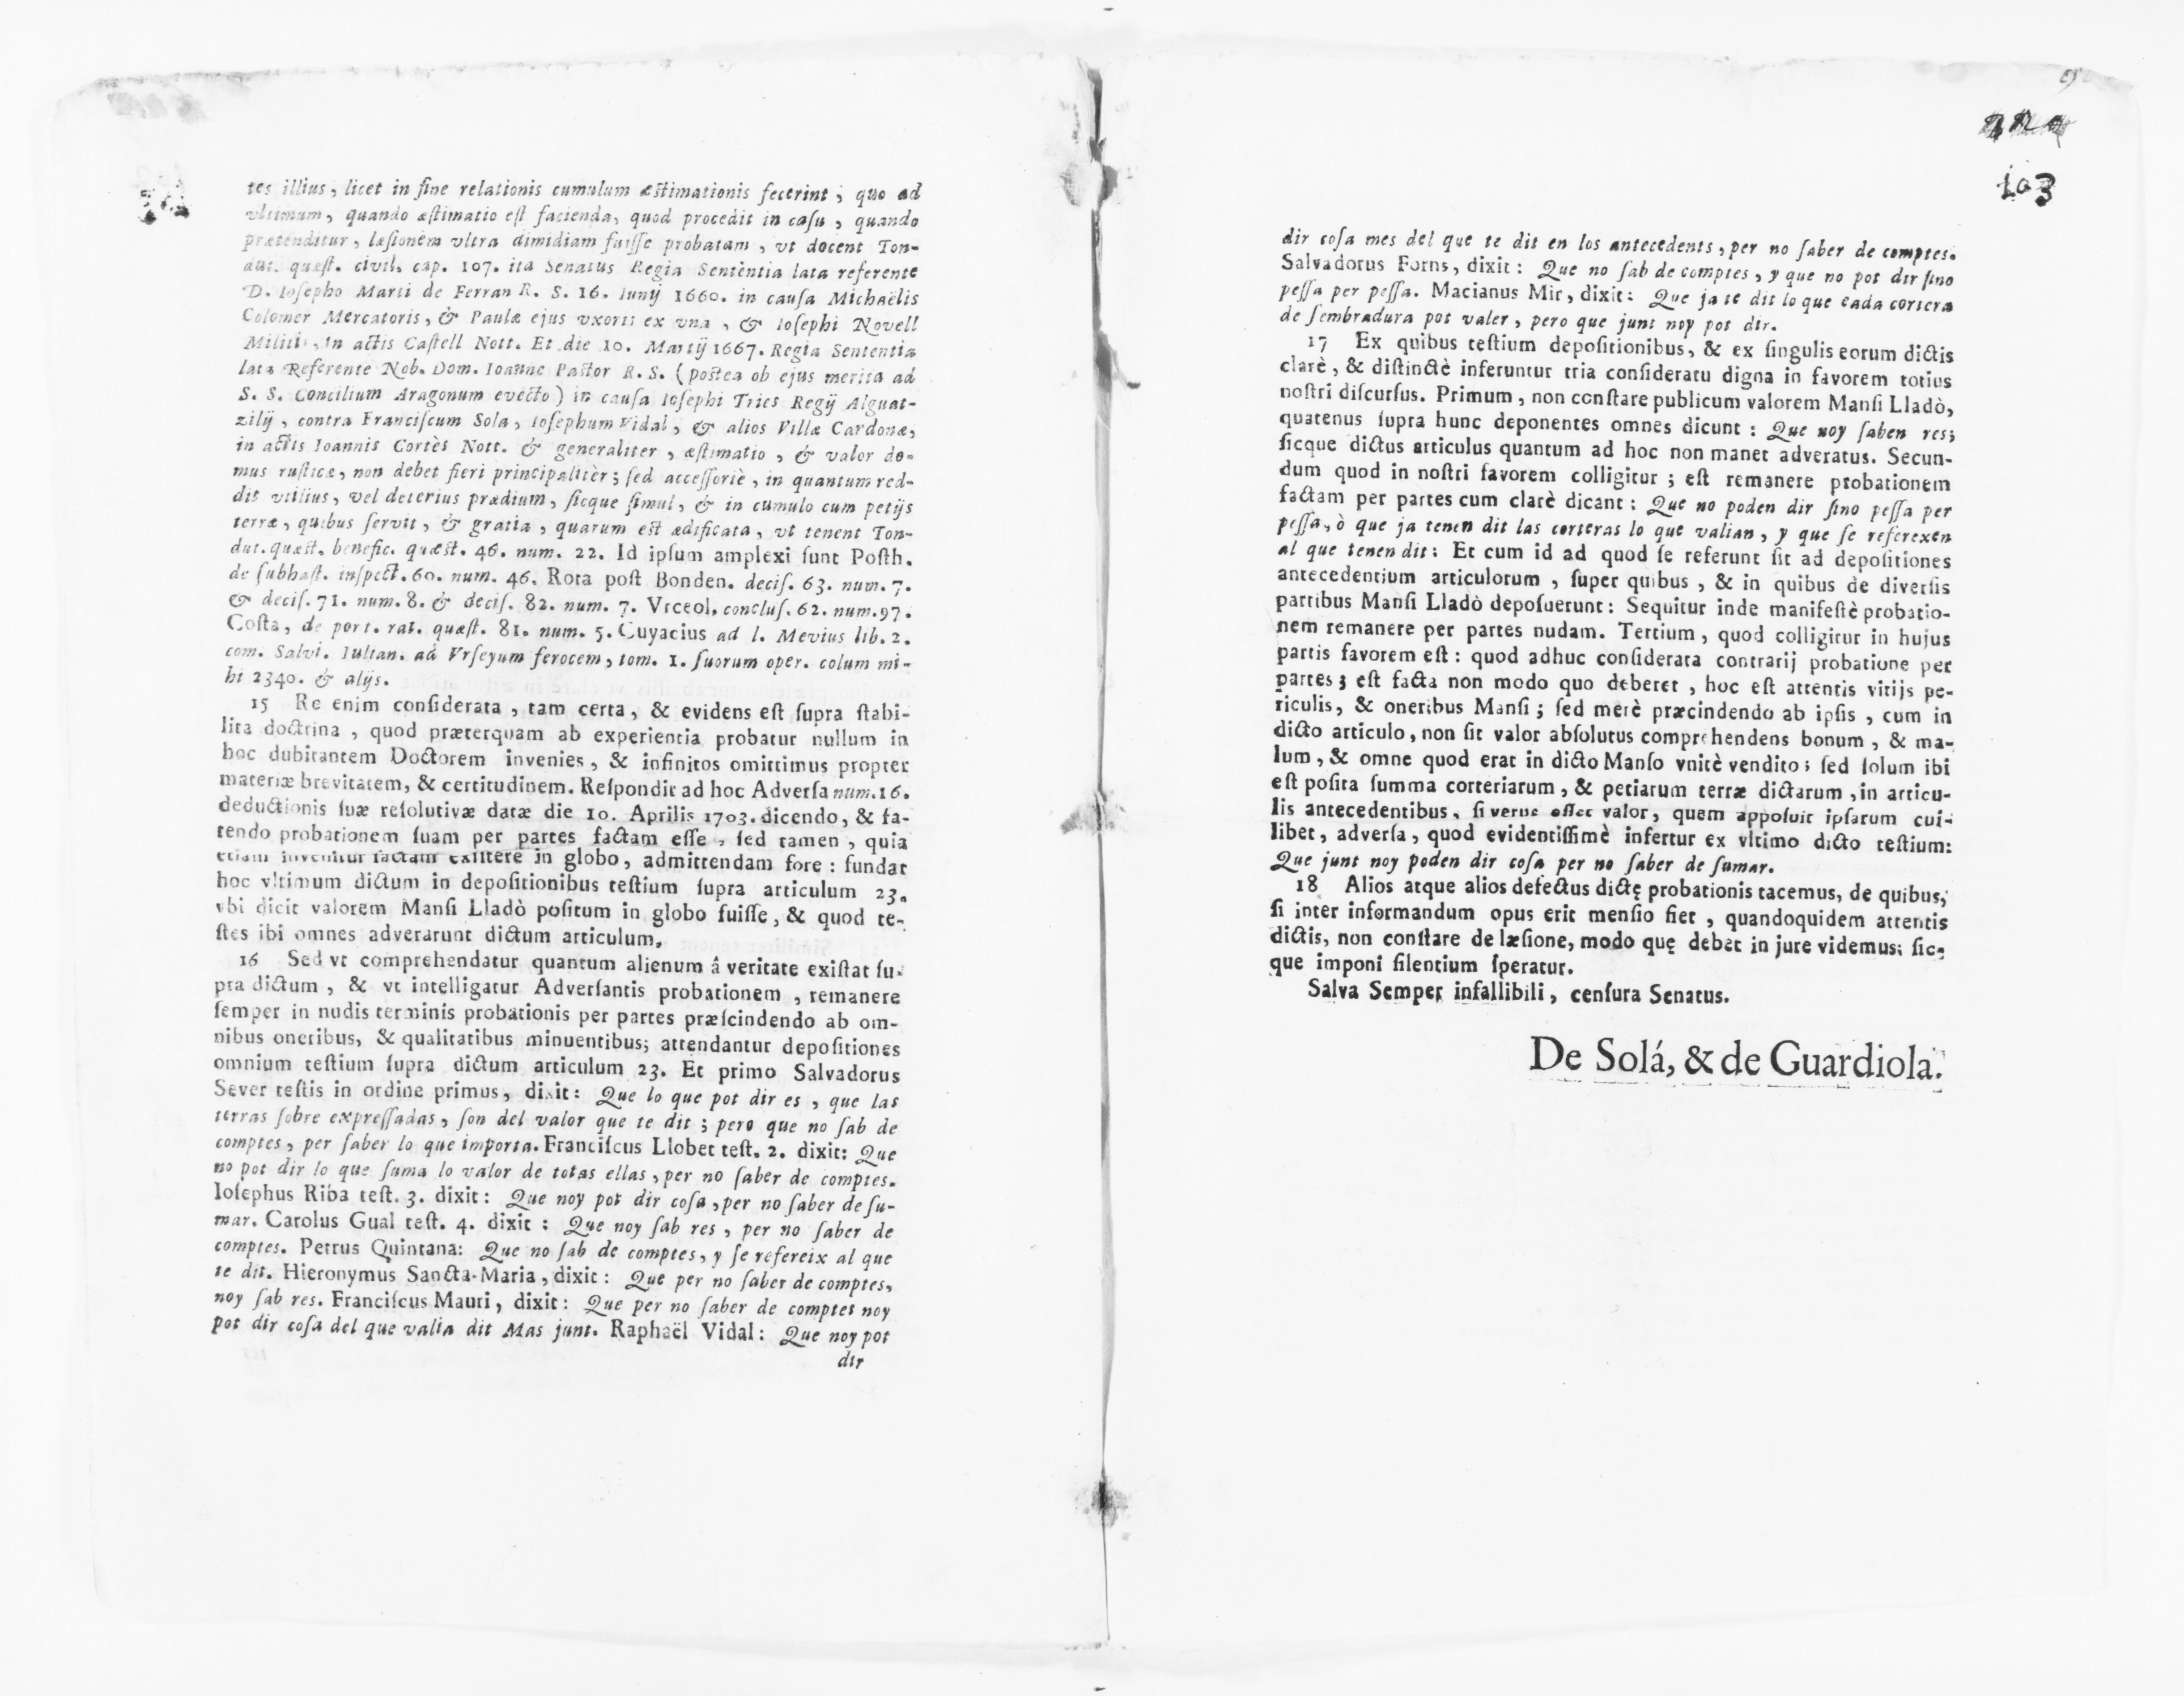 tes illius, licet in fine relationis cumulum æstimationis fecerint; quo ad
vltimum, quando æstimatio est facienda, quod procedit in casu, quando
prætenditur, læsionem vltra dimidiam fuisse probatam, vt docent Ton-
dut. quæst. civil. cap. 107. ita Senatus Regia Sententia lata referente
D. Iosepho Marti de Ferran R. S. 16. Iunij 1660. in causa Michaëlis
Colomer Mercatoris, & Paulæ ejus vxoris ex vna, & Iosephi Novell
Militis, in actis Castell Nott. Et die 10. Martij 1667. Regia Sententia
lata Referente Nob. Dom. Ioanne Pastor R. S. (postea ob ejus merita ad
S. S. Concilium Aragonum evecto) in causa Iosephi Tries Regij Alguat-
zilij, contra Franciscum Sola, Iosephum Vidal, & alios Villæ Cardonæ,
in actis Ioannis Cortès Nott. & generaliter, æstimatio, & valor do-
mus rusticæ, non debet fieri principalitèr; sed accessoriè, in quantum red-
dit vtilius, vel deterius prædium, sicque simul, & in cumulo cum petijs
terræ, quibus servit, & gratia, quarum est ædificata, vt tenent Ton-
dut. quæst. benefic. quæst. 46. num. 22. Id ipsum amplexi sunt Posth.
de subhast. inspect. 60. num. 46. Rota post Bonden. decis. 63. num. 7.
& decis. 71. num. 8. & decis. 82. num. 7. Vrceol. conclus. 62. num. 97.
Costa, de port. rat. quæst. 81. num. 5. Cuyacius ad l. Mevius lib. 2.
com. Salvi. Iulian. ad Vrseyum ferocem, tom. 1. suorum oper. colum mi-
hi 2340. & alijs.
15 Re enim considerata, tam certa, & evidens est supra stabi-
lita doctrina, quod præterquam ab experientia probatur nullum in
hoc dubitantem Doctorem invenies, & infinitos omittimus propter
materiæ brevitatem, & certitudinem. Respondit ad hoc Adversa num. 16.
deductionis suæ resolutivæ datæ die 10. Aprilis 1703. dicendo, & fa-
tendo probationem suam per partes factam esse, sed tamen, quia
etiam invenitur factam existere in globo, admittendam fore: fundat
hoc vltimum dictum in depositionibus testium supra articulum 23.
vbi dicit valorem Mansi Lladò positum in globo fuisse, & quod te-
stes ibi omnes adverarunt dictum articulum.
16 Sed vt comprehendatur quantum alienum â veritate existat su-
pra dictum, & vt intelligatur Adversantis probationem, remanere
semper in nudis terminis probationis per partes præscindendo ab om-
nibus oneribus, & qualitatibus minuentibus; attendantur depositiones
omnium testium supra dictum articulum 23. Et primo Salvadorus
Sever testis in ordine primus, dixit: Que lo que pot dir es, que las
terras sobre expressadas, son del valor que te dit; pero que no sab de
comptes, per saber lo que importa. Franciscus Llobet test. 2. dixit: Que
no pot dir lo que suma lo valor de totas ellas, per no saber de comptes.
Iosephus Riba test. 3. dixit: Que noy pot dir cosa, per no saber de su-
mar. Carolus Gual test. 4. dixit: Que noy sab res, per no saber de
comptes. Petrus Quintana: Que no sab de comptes, y se refereix al que
te dit. Hieronymus Sancta-Maria, dixit: Que per no saber de comptes,
noy sab res. Franciscus Mauri, dixit: Que per no saber de comptes noy
pot dir cosa del que valia dit Mas junt. Raphaël Vidal: Que noy pot
dir
103
dir cosa mes del que te dit en los antecedents, per no saber de comptes.
Salvadorus Forns, dixit: Que no sab de comptes, y que no pot dir sino
pessa per pessa. Macianus Mir, dixit: Que ja te dit lo que cada cortera
de sembradura pot valer, pero que junt noy pot dir.
17 Ex quibus testium depositionibus, & ex singulis eorum dictis
clarè, & distinctè inferuntur tria consideratu digna in favorem totius
nostri discursus. Primum, non constare publicum valorem Mansi Lladò,
quatenus supra hunc deponentes omnes dicunt: Que noy saben res;
sicque dictus articulus quantum ad hoc non manet adveratus. Secun-
dum quod in nostri favorem colligitur; est remanere probationem
factam per partes cum clarè dicant: Que no poden dir sino pessa per
pessa, ò que ja tenen dit las corteras lo que valian, y que se referexen
al que tenen dit: Et cum id ad quod se referunt sit ad depositiones
antecedentium articulorum, super quibus, & in quibus de diversis
partibus Mansi Lladò deposuerunt: Sequitur inde manifestè probatio-
nem remanere per partes nudam. Tertium, quod colligitur in hujus
partis favorem est: quod adhuc considerata contrarij probatione per
partes; est facta non modo quo deberet, hoc est attentis vitijs pe-
riculis, & oneribus Mansi; sed merè præcindendo ab ipsis, cum in
dicto articulo, non sit valor absolutus comprehendens bonum, & ma-
lum, & omne quod erat in dicto Manso vnitè vendito; sed solum ibi
est posita summa corteriarum, & petiarum terræ dictarum, in articu-
lis antecedentibus, si verus esset valor, quem apposuit ipsarum cui-
libet, adversa, quod evidentissimè infertur ex vltimo dicto testium:
Que junt noy poden dir cosa per no saber de sumar.
18 Alios atque alios defectus dictę probationis tacemus, de quibus,
si inter informandum opus erit mensio fiet, quandoquidem attentis
dictis, non constare de læsione, modo quę debet in jure videmus; sic-
que imponi silentium speratur.
Salva Semper infallibili, censura Senatus.
De Solá, & de Guardiola.